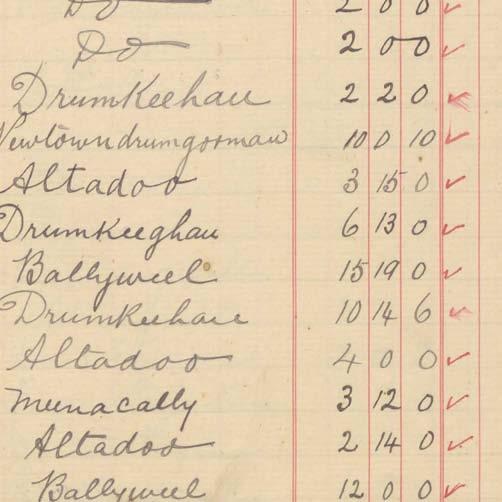 Do 2 0 0
Do 2 0 0
Drumkeehan 2 2 0
Newtowndrumgorman 10 0 10
Altadoo 3 15 0
Drumkeeghan 6 13 0
Ballyweel 15 19 0
Drumkeehan 10 14 6
Altadoo 4 0 0
Meenacally 3 12 0
Altadoo 2 14 0
Ballyweel 12 0 0